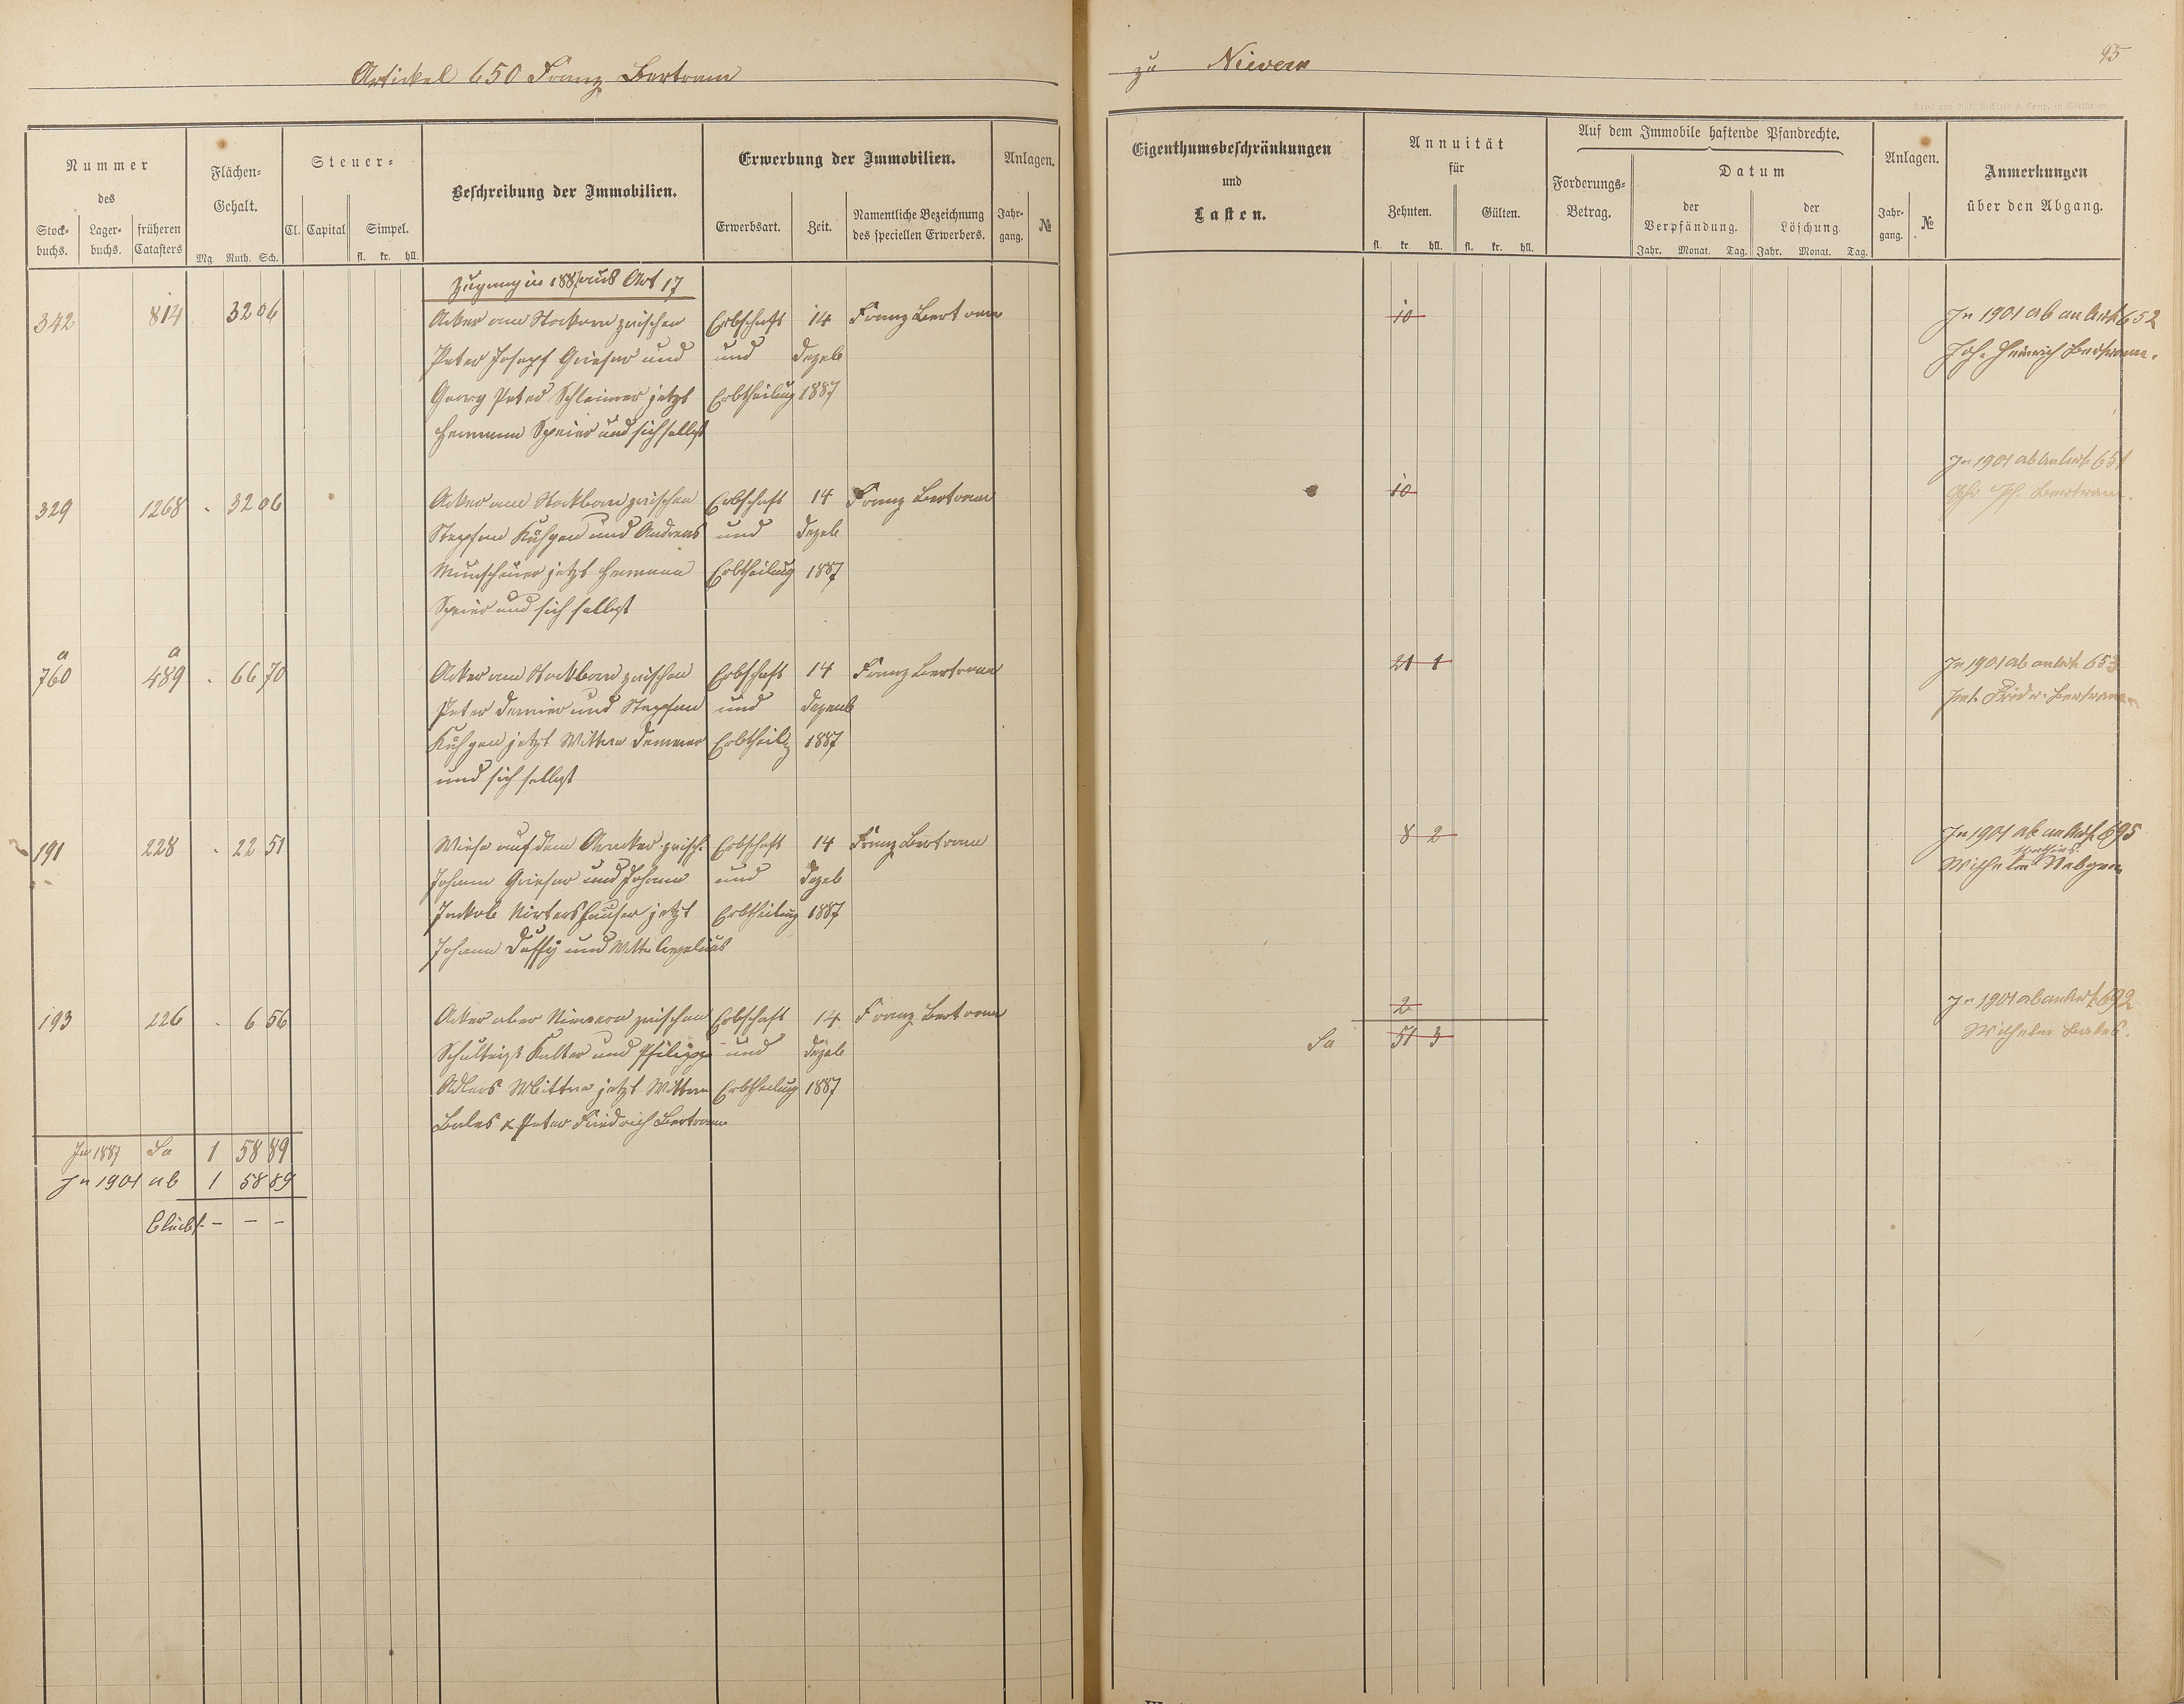 Artickel 650 Franz Bertram
Nummer
des
Stock-
buchs.
Lager-
buchs.
früheren
Catasters
Flächen-
Gehalt.
Mg Ruth. Sch.
Steuer-
Cl. Capital Simpel.
fl. kr. hll.
Beschreibung der Immobilien.
Erwerbung der Immobilien.
Erwerbsart. Zeit.
Namentliche Bezeichnung
des speciellen Erwerbers.
Anlagen.
Jahr-
gang.
№
Zugang in 1887 aus Art 17
342 814 32 06 Acker am Stockorn zwischen Erbschaft 14 Franz Bertram
Peter Josepf Grieser und und Dezeb
Georg Peter Schleimer jetzt Erbtheilung 1887
Hermann Speier und sich selbst
329 1268 - 32 06 Acker am Stockborn zwischen Erbschaft 14 Franz Bertram
Stephan Kuhgen und Andreas und Dezeb
Munscheuer jetzt Hermann Erbtheilung 1887
Speier und sich selbst
a a
760 489 - 66 70 Acker am Stockborn zwischen Erbschaft 14 Franz Bertram
Peter Demier und Stephan und Dezemb
Kuhgen jetzt Wittwe Demmer Erbtheilg 1887
und sich selbst
191 228 - 22 51 Wiese auf dem zwisch. Erbschaft 14 Franz Bertram
Johann Grieser und Johann und Dezeb
Jackob Kirtershauser jetzt Erbtheilung 1887
Johann Duffy und Wttw
193 226 - 6 56 Acker ober Nievern zwischen Erbschaft 14 Franz Bertram
Schulteiß Kalter und Philipp und Dezeb
Adlers Wittwe jetzt Wittwe Erbtheilung 1887
Bales & Peter Friedrich Bertram
In 1887 Sa 1 58 89
In 1901 ab 1 58 89
Bleibt - - -
zu Nievern
95
Eigenthumsbeschränkungen
und
Lasten.
Annuität
für
Zehnten. Gülten.
fl. kr. hll. fl. kr. hll.
Auf dem Immobile haftende Pfandrechte.
Forderungs-
Betrag.
Datum
der
Verpfändung.
der
Löschung.
Jahr. Monat. Tag. Jahr. Monat. Tag.
Anlagen.
Jahr-
gang.
№
Anmerkungen
über den Abgang.
10 In 1901 ab an Art 652
Joh. Heinrich Bertram.
10 In 1901 ab an Art. 651
Bertram.
21 1 In 1901 ab an Art. 653
Pet. Friedr. Bertram
8 2 In 1901 ab an Art. 695
Mathias
Wilhelm Nebgen
2 In 1901 ab an Art. 692
Wilhelm Bales.
Sa 51 3